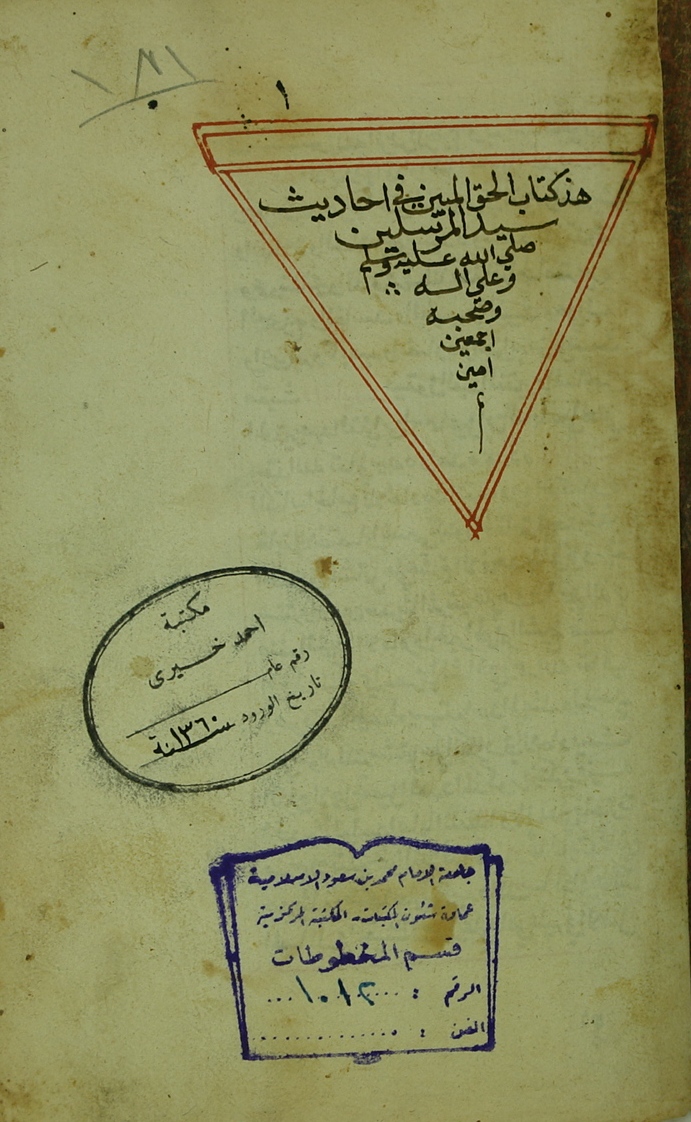 ١
هذ كتاب الحق المبين في احاديث
سيد المرسلين
صلي الله عليه وسلم
وعلي اله
وصحبه
اجمعين
امين
مكتبة
احمد خيرى
رقم عام
تاريخ الورود سنة ١٣٦٠
جامعة الامام محمد بن سعود الاسلامية
عمادة شئون المكتبات - المكتبة المركزية
قسم المخطوطات
الرقم :
الفن :